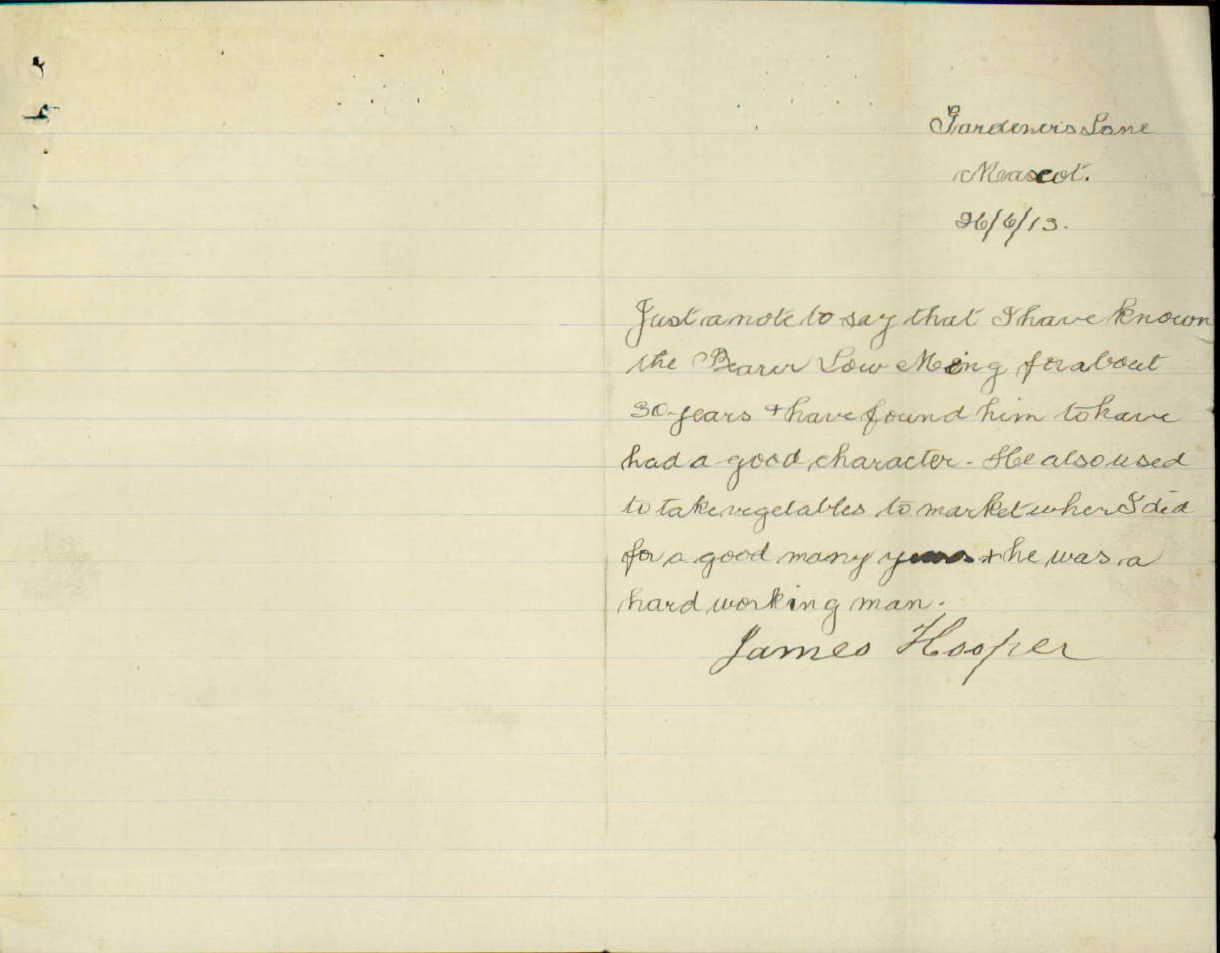 Gardeners Lane
Mascot.
26/6/13.
Just a note to say that I have known
the Bearer Low Meing for about
30 years + have found him to have
had a good character. He also used
to take vegetables to market when I did
for a good many years + he was a
hard working man.
James Hooper